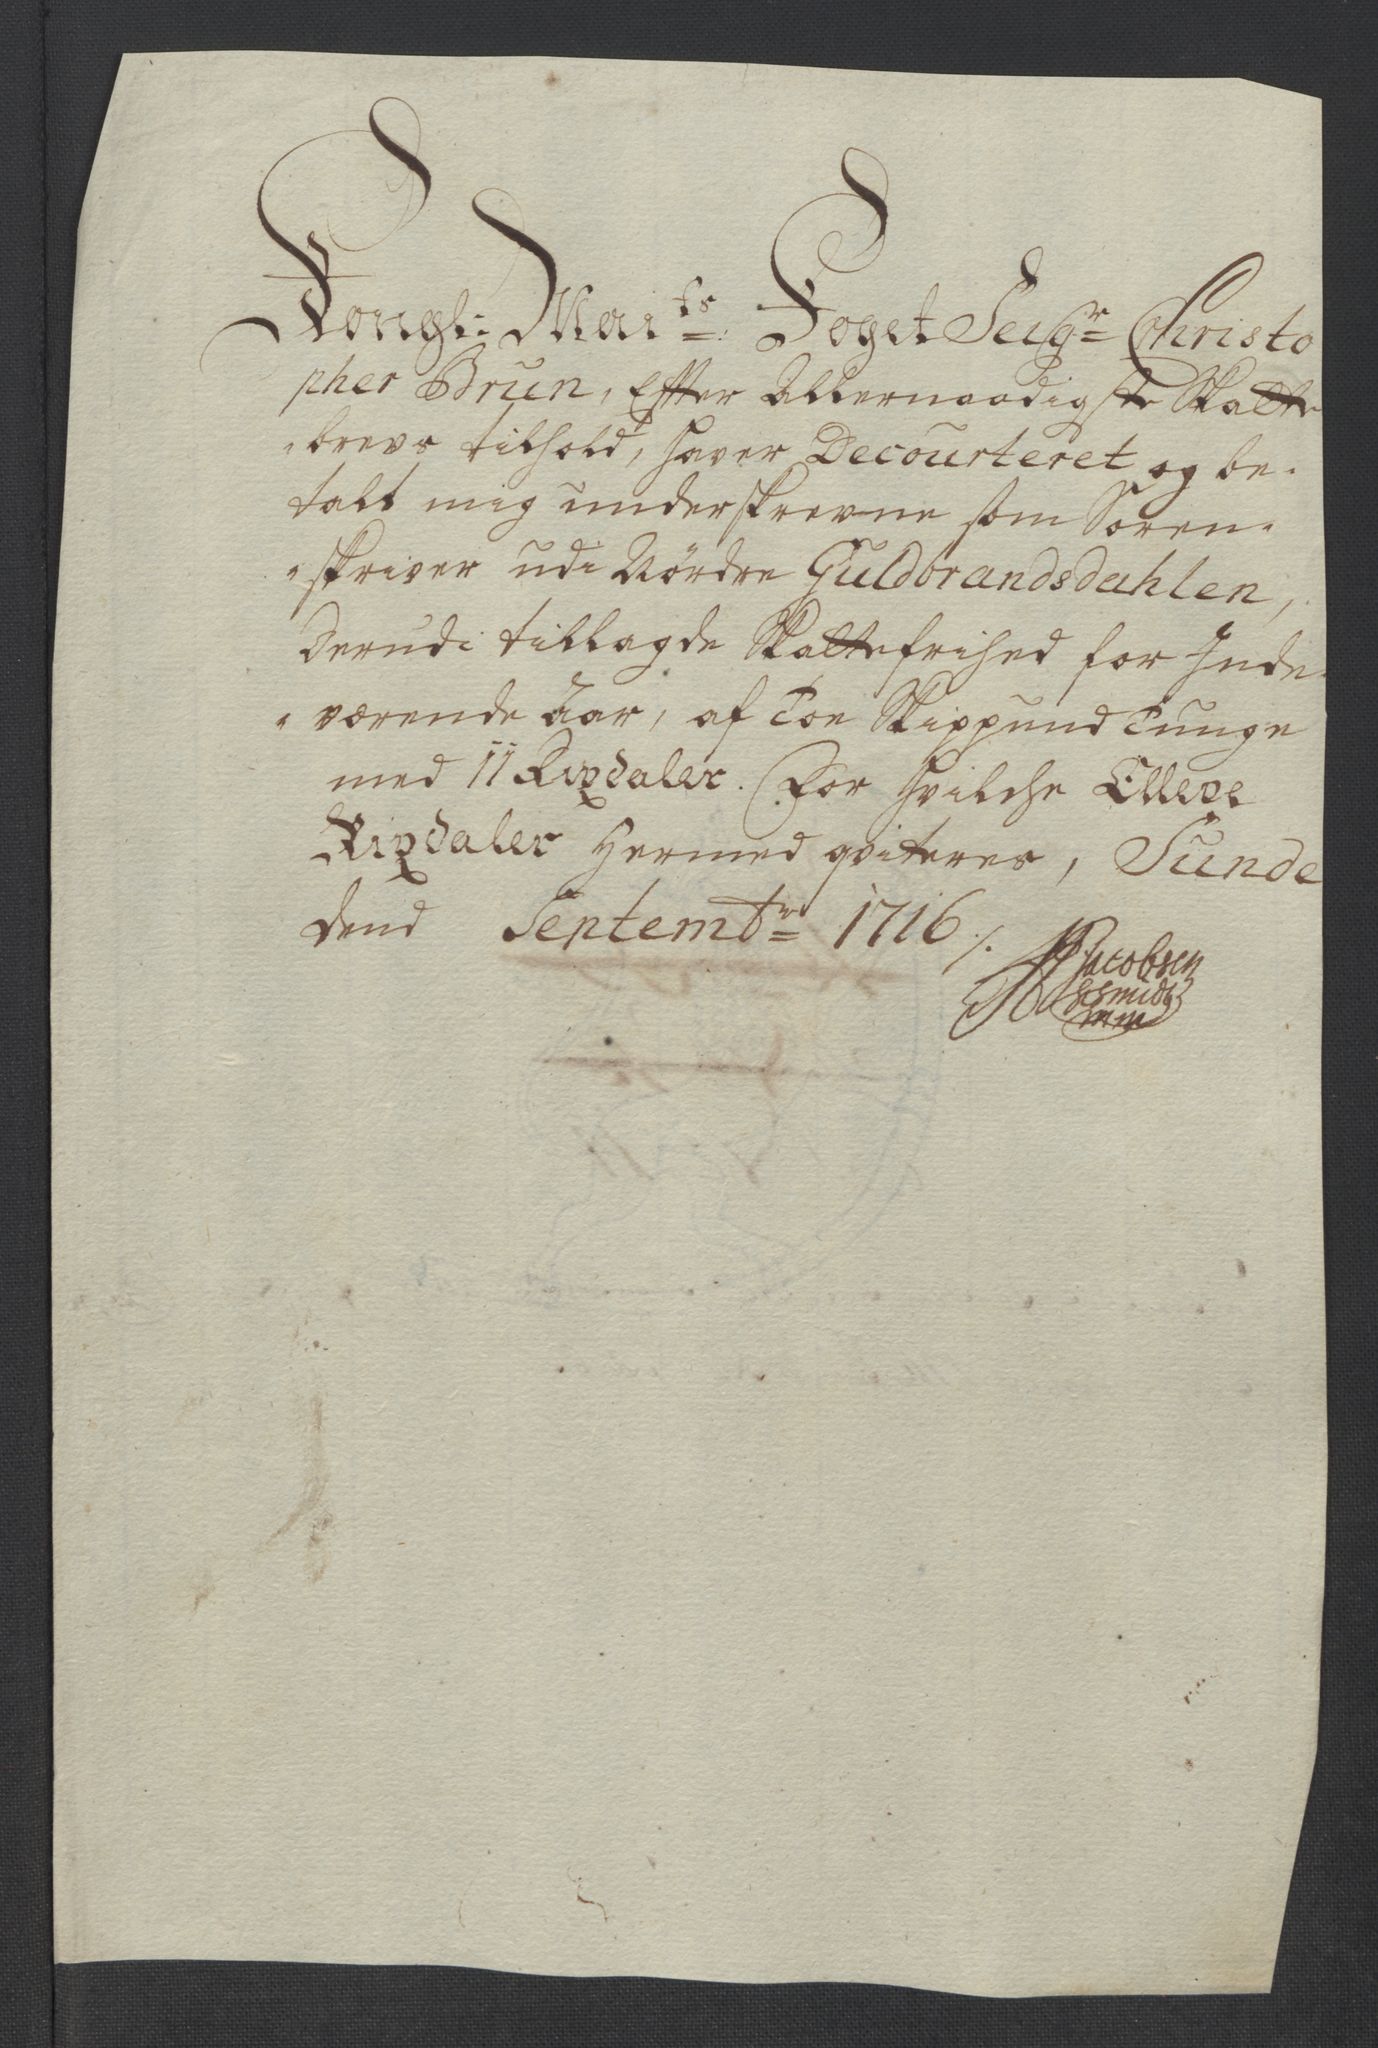 Kongl: Maits: Foget Seigr Christo
pher Brun, Efter Allernaadigste Skatte
brevs tilhold, haver Decourteret og be-
talt mig underskrevne som Soren-
skriver udi Nördre Guldbrandsdahlen,
Derudi tillagde Skattefrihed for Inde-
værende Aar, af Toe Skippund Tunge
med 11 Rixdaler. For hvilche Elleve
Rixdaler hermed qviteres, Sunde
dend Septembr 1716 ./.
Jacobsen
Schmidt
mm